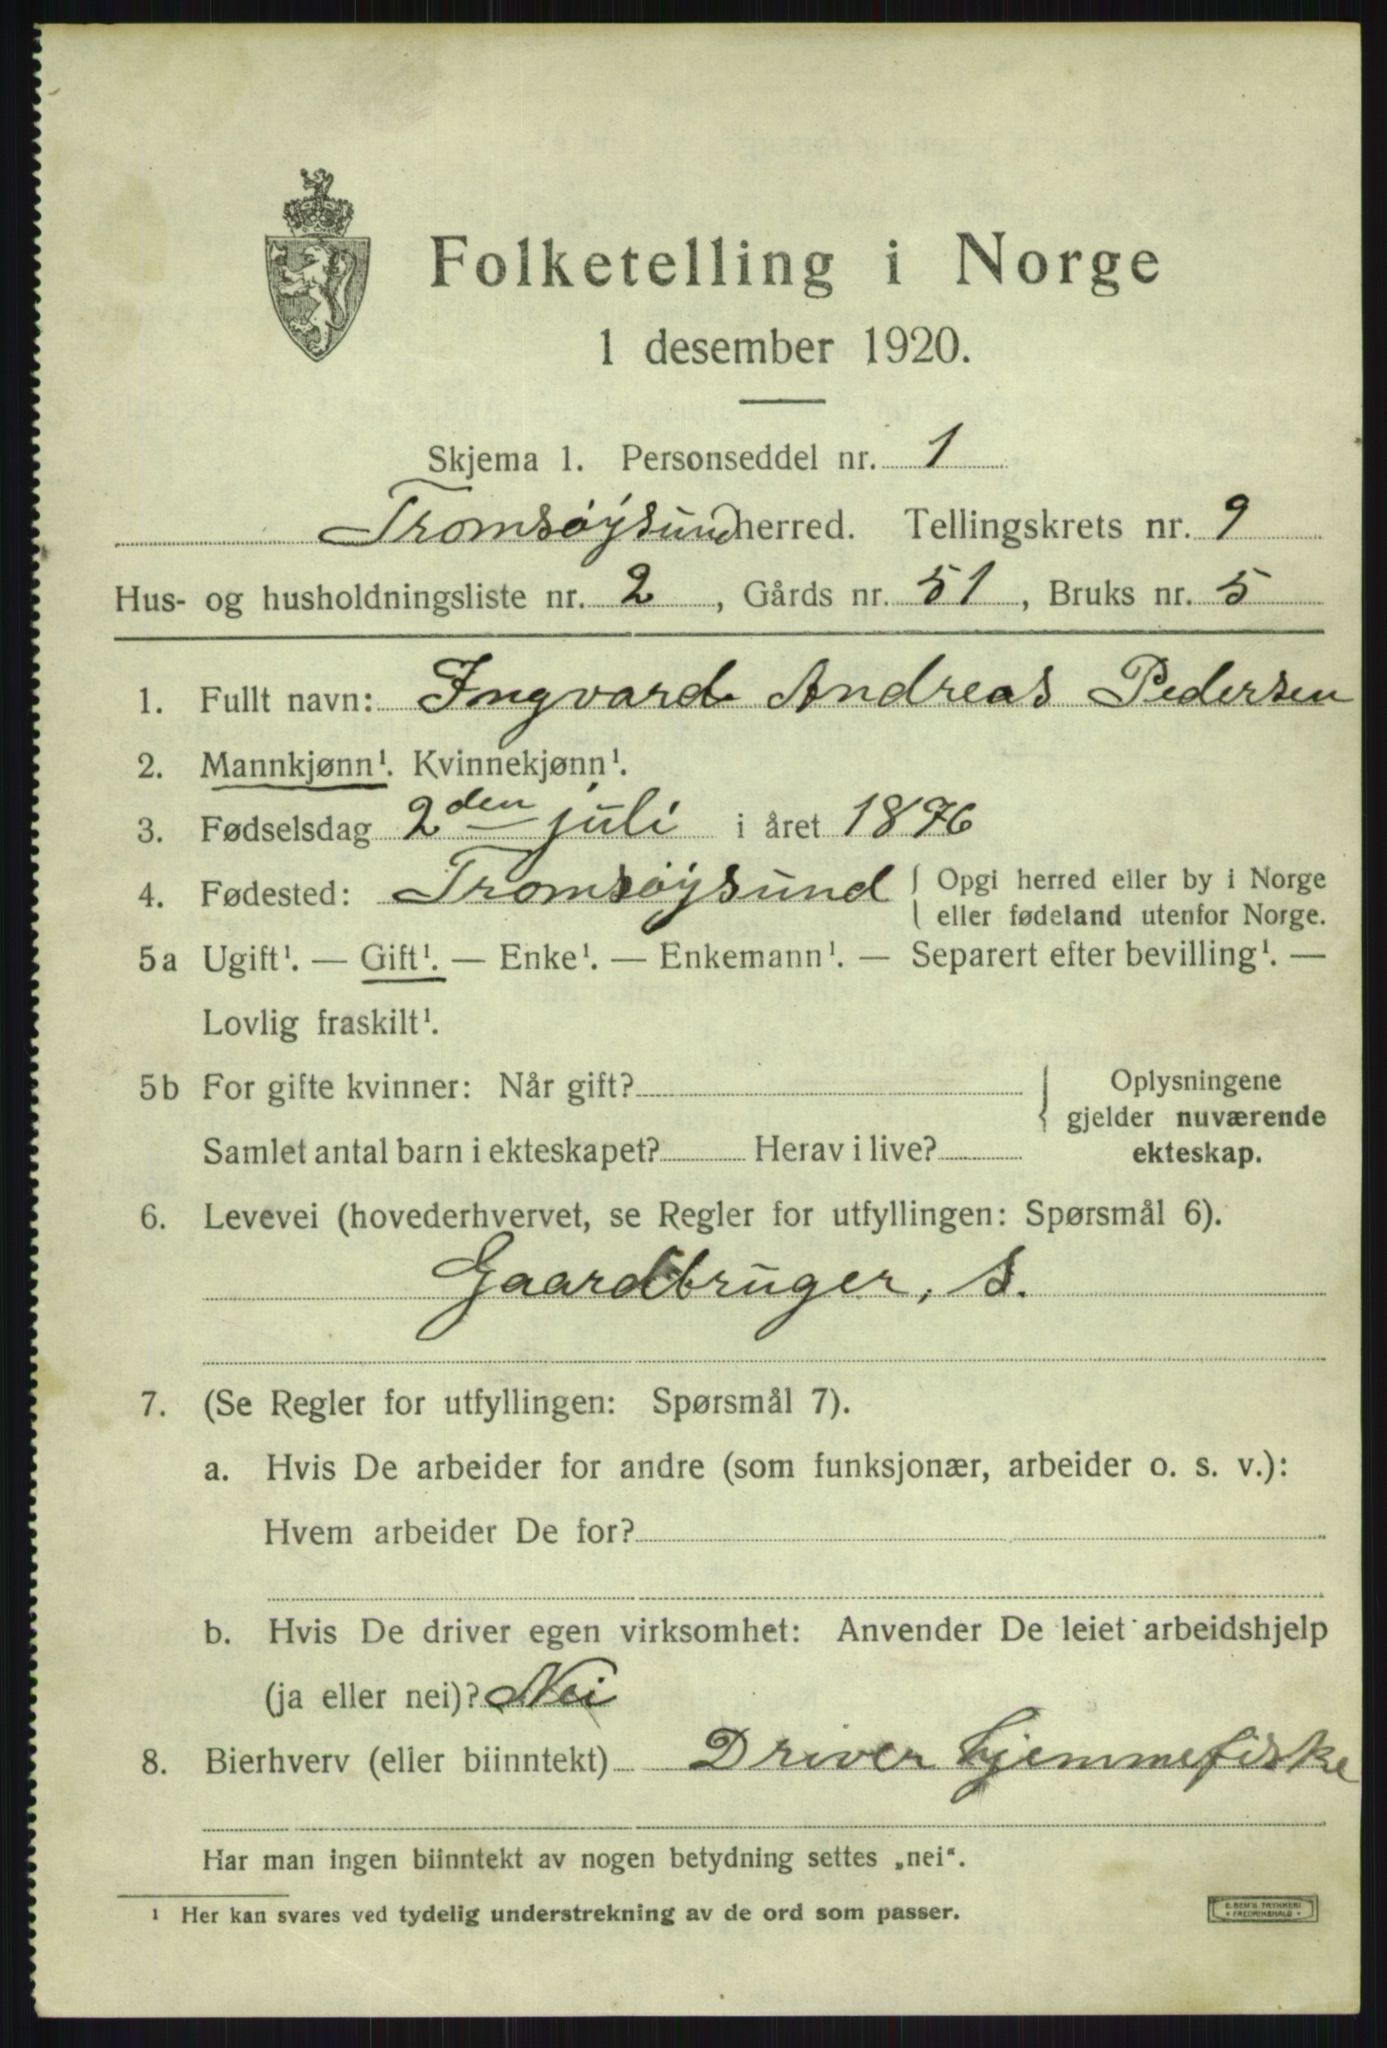 Folketelling i Norge
1 desember 1920.
Skjema 1. Personseddel nr. 1
Tromsøysund herred. Tellingskrets nr. 9
Hus- og husholdningsliste nr. 2, Gårds nr. 51, Bruks nr. 5
1. Fullt navn: Ingvard Andreas Pedersen
2. Mannkjønn¹. Kvinnekjønn¹.
3. Fødselsdag 2den juli i året 1876
4. Fødested: Tromsøysund { Opgi herred eller by i Norge
eller fødeland utenfor Norge.
5a Ugift¹. — Gift¹. — Enke¹. — Enkemann¹. — Separert efter bevilling¹. —
Lovlig fraskilt¹.
5b For gifte kvinner: Når gift? { Oplysningene
gjelder nuværende
Samlet antal barn i ekteskapet? Herav i live? ekteskap.
6. Levevei (hovederhvervet, se Regler for utfyllingen: Spørsmål 6).
Gaardbruger, s.
7. (Se Regler for utfyllingen: Spørsmål 7).
a. Hvis De arbeider for andre (som funksjonær, arbeider o. s. v.):
Hvem arbeider De for?
b. Hvis De driver egen virksomhet: Anvender De leiet arbeidshjelp
(ja eller nei)? Nei
8. Bierhverv (eller biinntekt) Driver hjemmefiske
Har man ingen biinntekt av nogen betydning settes „nei“.
¹ Her kan svares ved tydelig understrekning av de ord som passer.
E. SEM'S TRYKKERI
FREDRIKSHALD